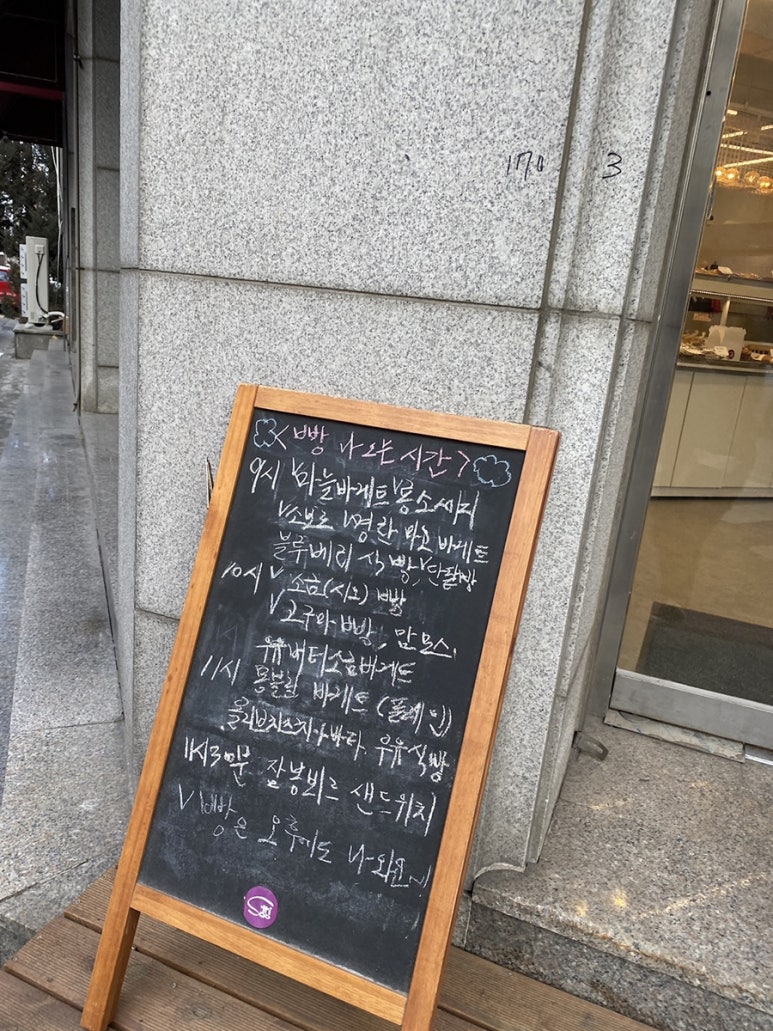 170 3
<빵 나오는 시간>
9시 V마늘바게트 V롱소세지
V소보로 V명란마요 바게트
블루베리 식빵, V단팥빵
10시 V소금(시오) 빵
V고구마빵, 맘모스.
우유버터소금바게트
11시 몽블랑 바게트 (플레인)
올리브치즈치아바타. 우유식빵
11시30분 잠봉뵈르 샌드위치
V빵은 오후에도 나와요~!